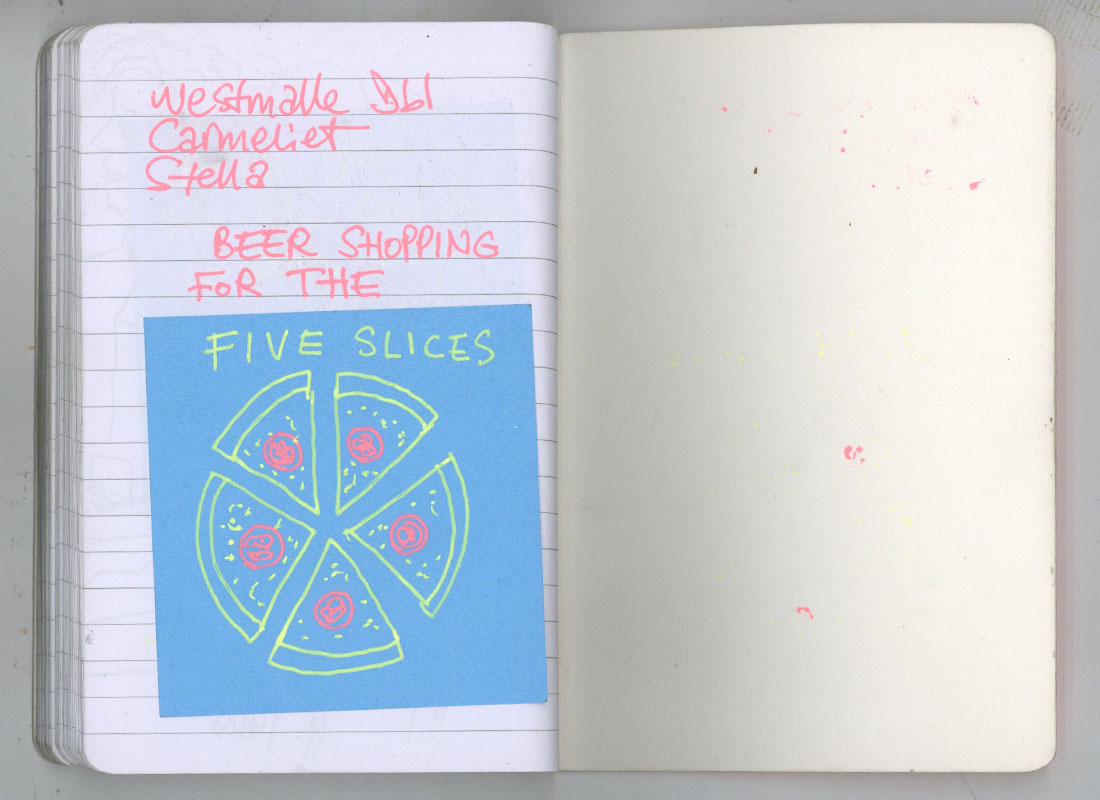 Westmalle Dbl
Carmeliet
Stella
BEER SHOPPING
FOR THE
FIVE SLICES